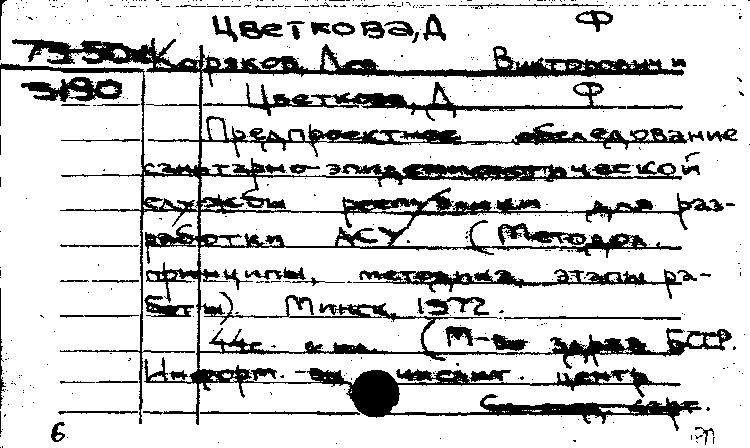 Цветкова, Д Ф
73-50
Коряков, Лев Викторович и
3190 Цветкова, Д Ф
Предпроектное обследование
санитарно-эпидемиологической
службы республики для раз-
работки АСУ. (Методол.
принципы, методика, этапы ра-
боты). Минск, 1972.
44с. с ил. (М-во здрав. БССР.
Информ.-вычислит. центр
6